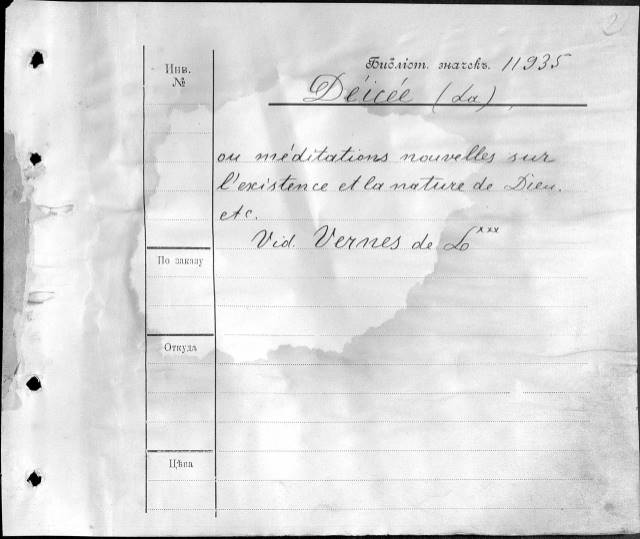 2
Библіот. значекъ. 11935
Инв.
№
Déicée (La),
ou méditations nouvelles sur
l'existence et la nature de Dieu.
etc.
Vid. Vernes de L***
По заказу
Откуда
Цѣна